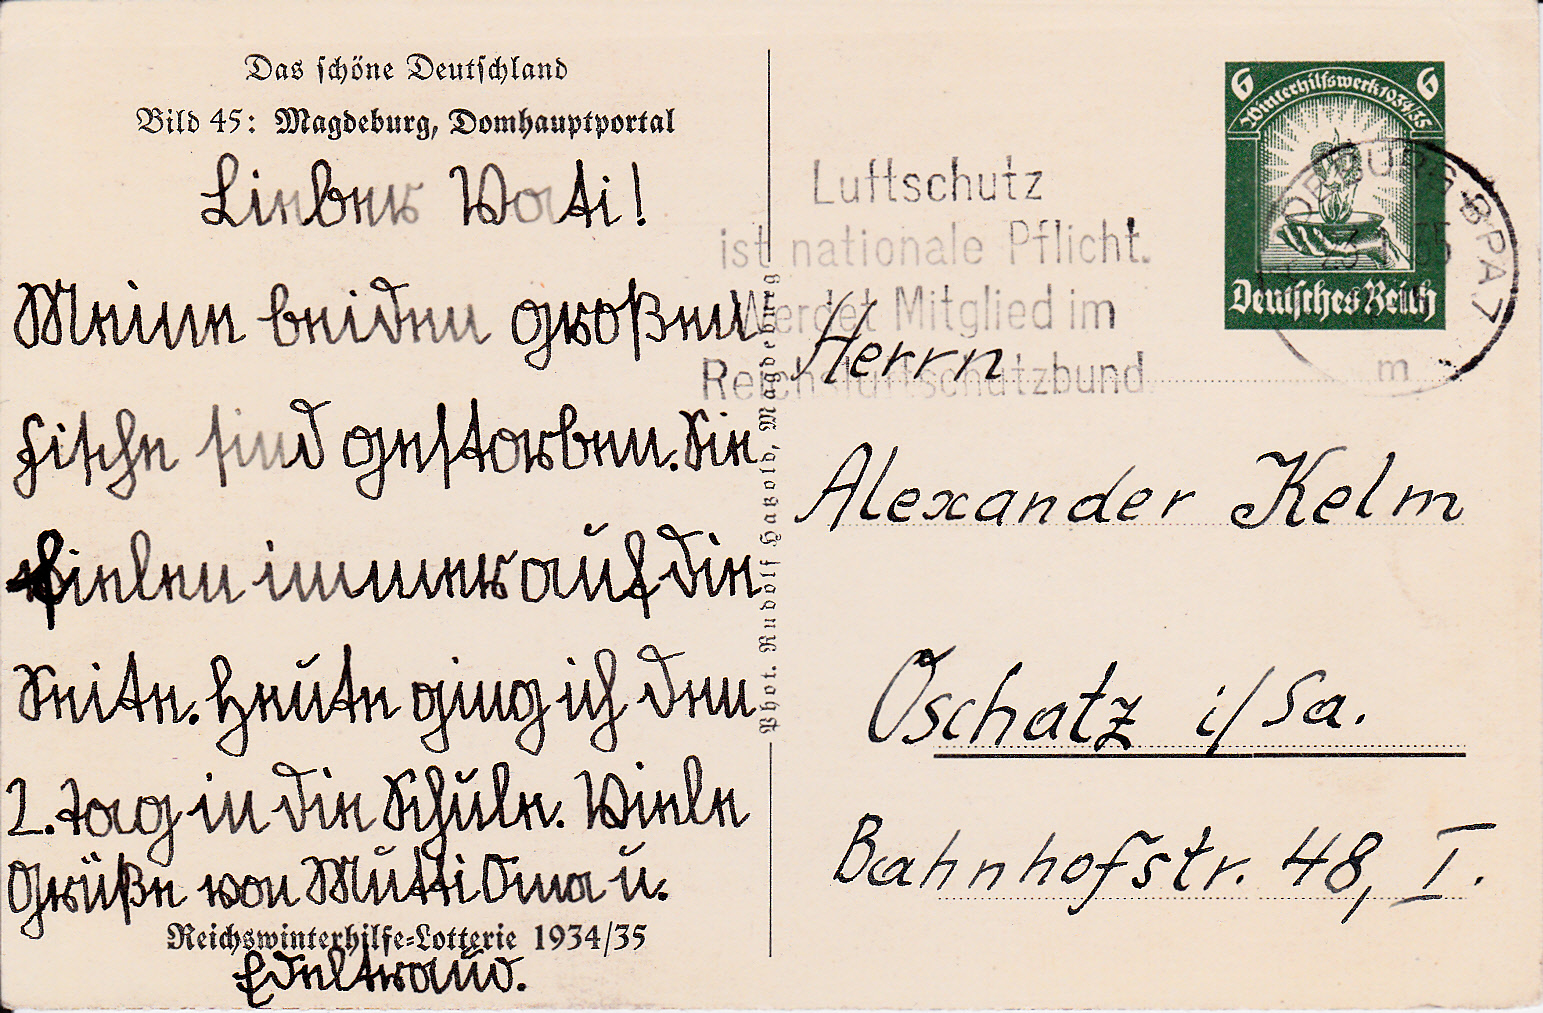 Das schöne Deutschland
Bild 45: Magdeburg, Domhauptportal
Lieber Vati!
Meine beiden großen
Fische sind gestorben. Sie
fielen immer auf die
Seite. Heute ging ich den
2. Tag in die Schule. Viele
Grüße von Mutti Oma u.
Edeltraud.
Reichswinterhilfe-Lotterie 1934/35
Phot. Rudolf Hatzold, Magdeburg
Luftschutz
ist nationale Pflicht.
Werdet Mitglied im
Reichsluftschutzbund
6 6
Winterhilfswerk 1934/35
Deutsches Reich
35
m
Herrn
Alexander Kelm
Oschatz i/Sa.
Bahnhofstr. 48, I.